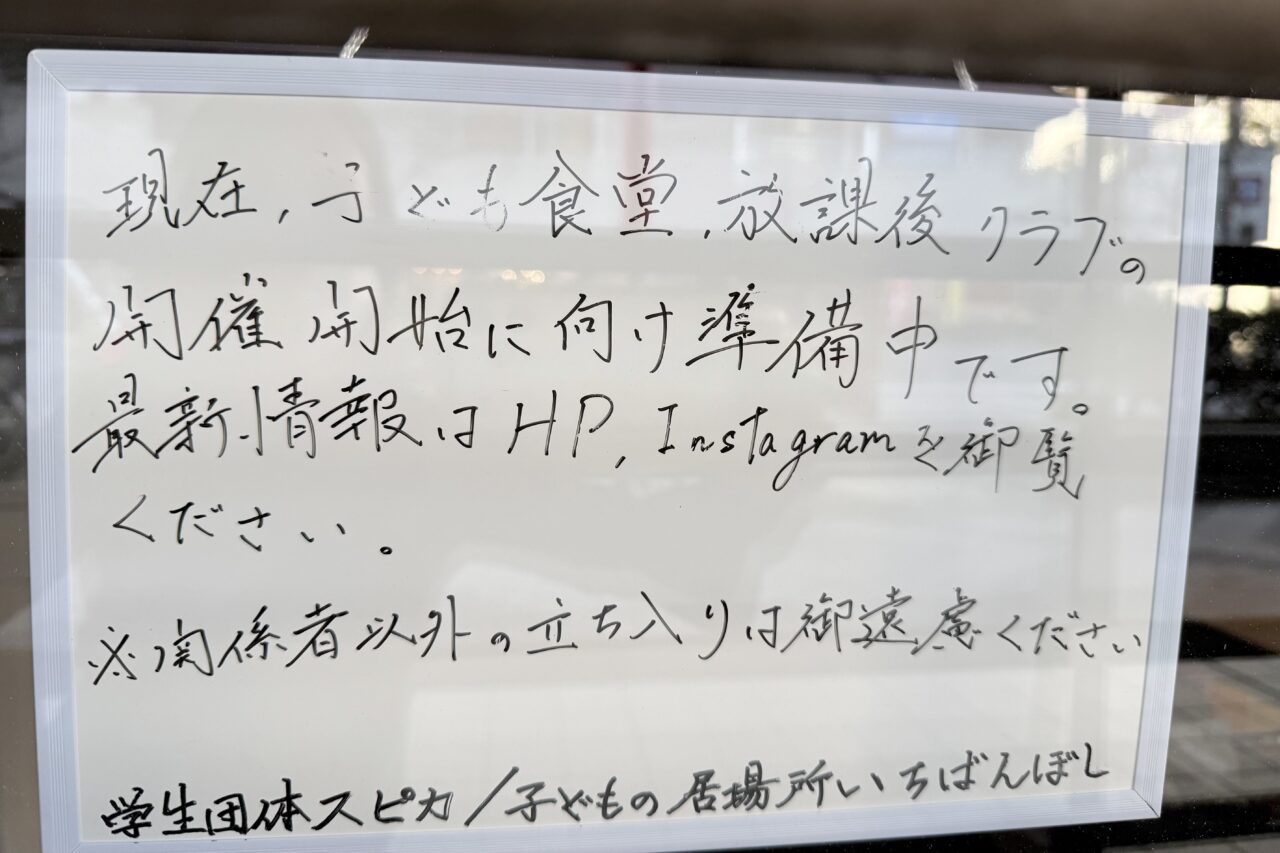 現在,子ども食堂,放課後クラブの
開催開始に向け準備中です。
最新情報はHP, Instagramを御覧
ください。
※関係者以外の立ち入りは御遠慮ください
学生団体スピカ/子どもの居場所いちばんぼし